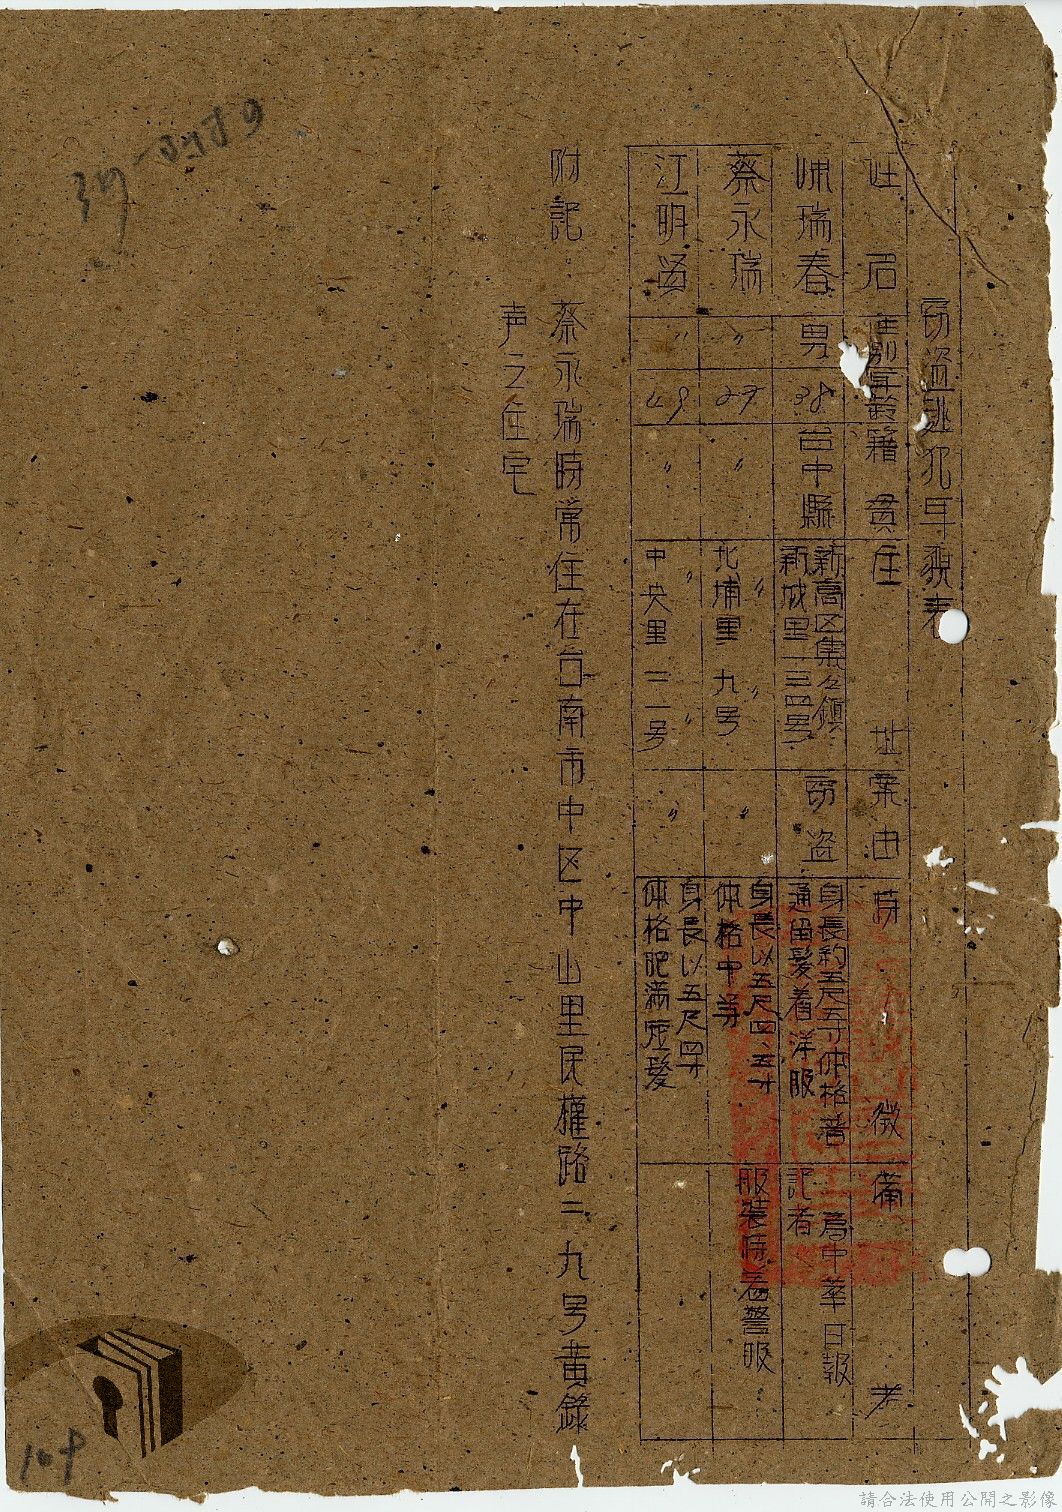 窃盗逃犯年貌表
姓名 性別 年齡 籍貫 住址 案由 特徵 備考
陳瑞春 男 38 台中縣 新高区集々鎮新城里一三四号 窃盗 身長約五尺五寸体格普通留髮着洋服 為中華日報記者
蔡永瑞 〃 27 〃 〃 〃 北埔里 九号 〃 身長以五尺四、五寸体格中等 服装時着警服
江明 〃 49 〃 〃 〃 中央里 二一号 〃 身長以五尺四寸体格肥滿短髮
附記 蔡永瑞時常住在台南市中区中山里民權路二九号黄錄
声之住宅
37
109
請合法使用公開之影像